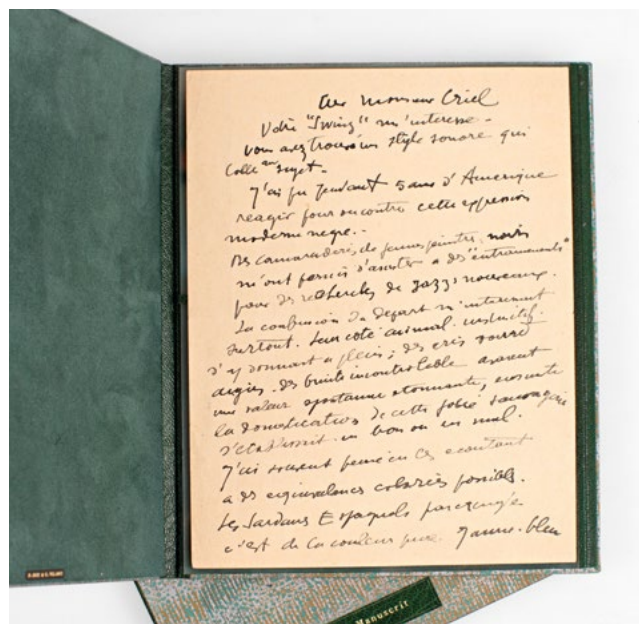 Cher Monsieur Criel
Votre "Swing" m'interesse -
vous avez trouvé un style sonore qui
colle au sujet -
J'ai pu pendant 5 ans d'Amerique
reagir pour ou contre cette expression
moderne negre. -
Des camaraderies de jeunes peintres noirs
m'ont permis d'assister a des "entrainements"
pour des recherches de jazz nouveaux.
La confusion du depart m'interessait
surtout. Leur coté animal instinctif
s'y donnait a plein ; des cris sourds
aigus - des bruits incontrolable avaient
une valeur spontanee etonnante, ensuite
la domestication de cette folie sauvagine
s'etablissait en bon ou en mal.
J'ai souvent pensé en les ecoutant
a des equivalences colorées possibles.
Les Sardanes Espagnols par exemple
c'est de la couleur pure. Jaune-bleu
Manuscrit